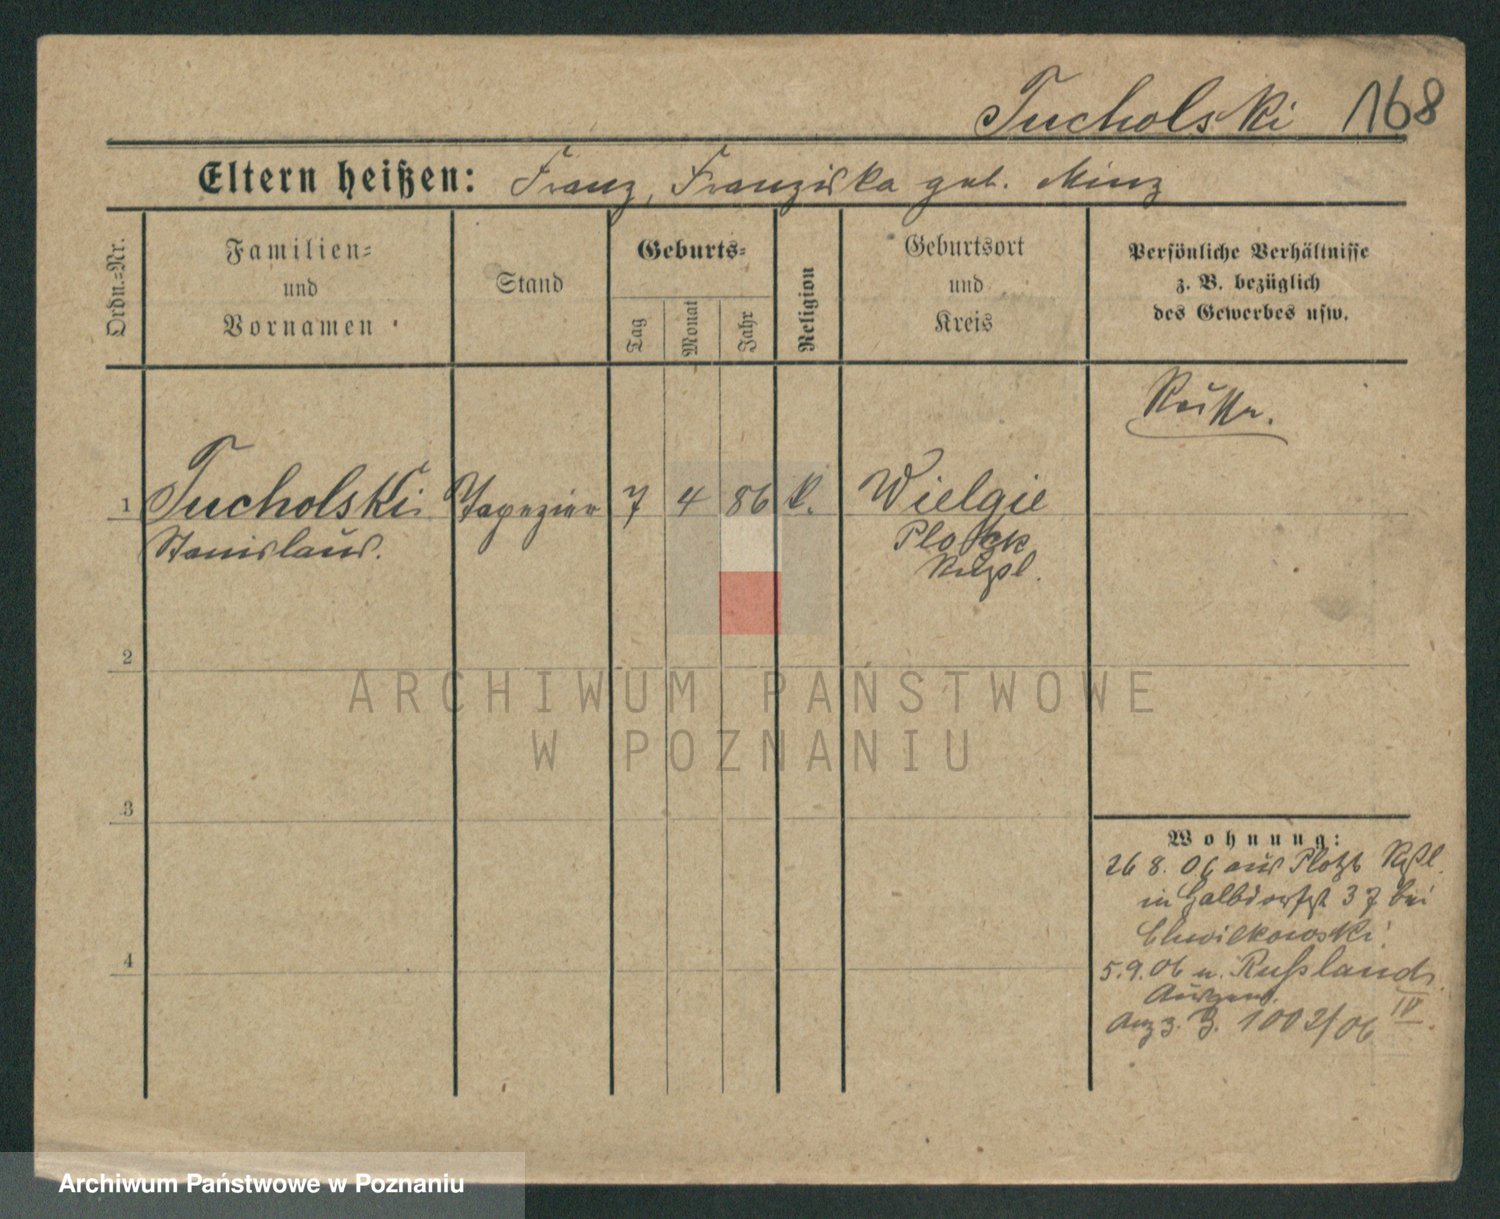 Tucholski 168
Eltern heißen: Franz, Franziska geb. Minz
Ordn.=Nr.
Familien=
und
Vornamen
Stand
Geburts=
Tag
Monat
Jahr
Religion
Geburtsort
und
Kreis
Persönliche Verhältnisse
z. B. bezüglich
des Gewerbes usw.
Russe.
1 Tucholski Tapezier 7 4 86 k. Wielgie
Stanislaus. Plotzk
Rußl.
2
ARCHIWUM PAŃSTWOWE
W POZNANIU
3
4
Wohnung:
26 8. 06 aus Plotzk Rßl.
in Halbdorfst 37 bei
Chwilkowski
5.9.06 n. Russland
Ausgew.
Anz z. J. 1002/06 IV
Archiwum Państwowe w Poznaniu